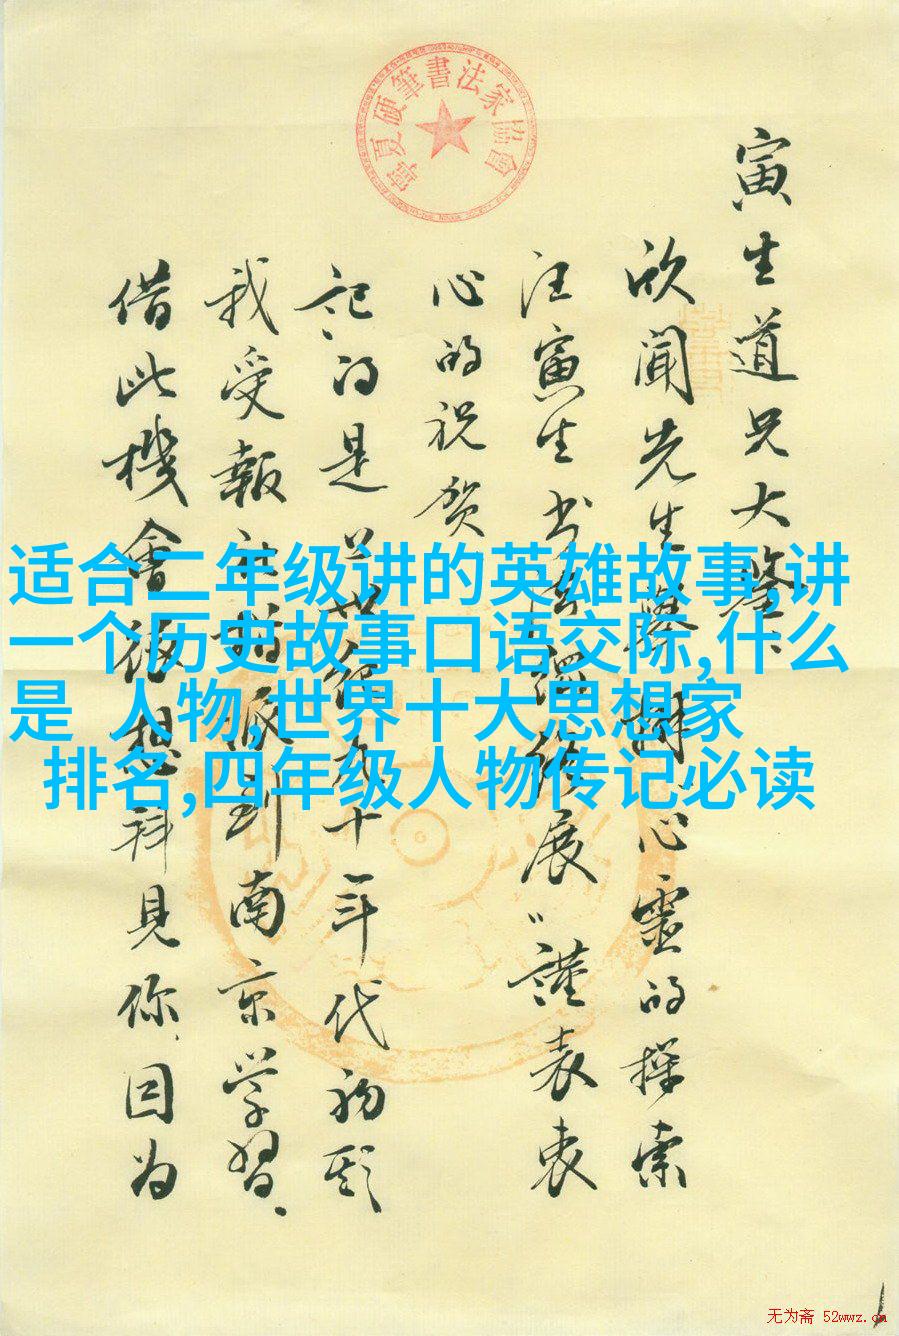 寧夏硬筆書法家協會
寅生道兄大鉴:
欣闻先生舉辦“心靈的探索
汪寅生书法 展”謹表衷
心的祝贺.
记的是上世纪九十年代初期
我受報社指派到南京学習.
借此機會很想拜見你,因为
适合二年级讲的英雄故事,讲
一个历史故事口语交际,什么
是 人物,世界十大思想家
排名,四年级人物传记必读
无为斋 52wwz.cn